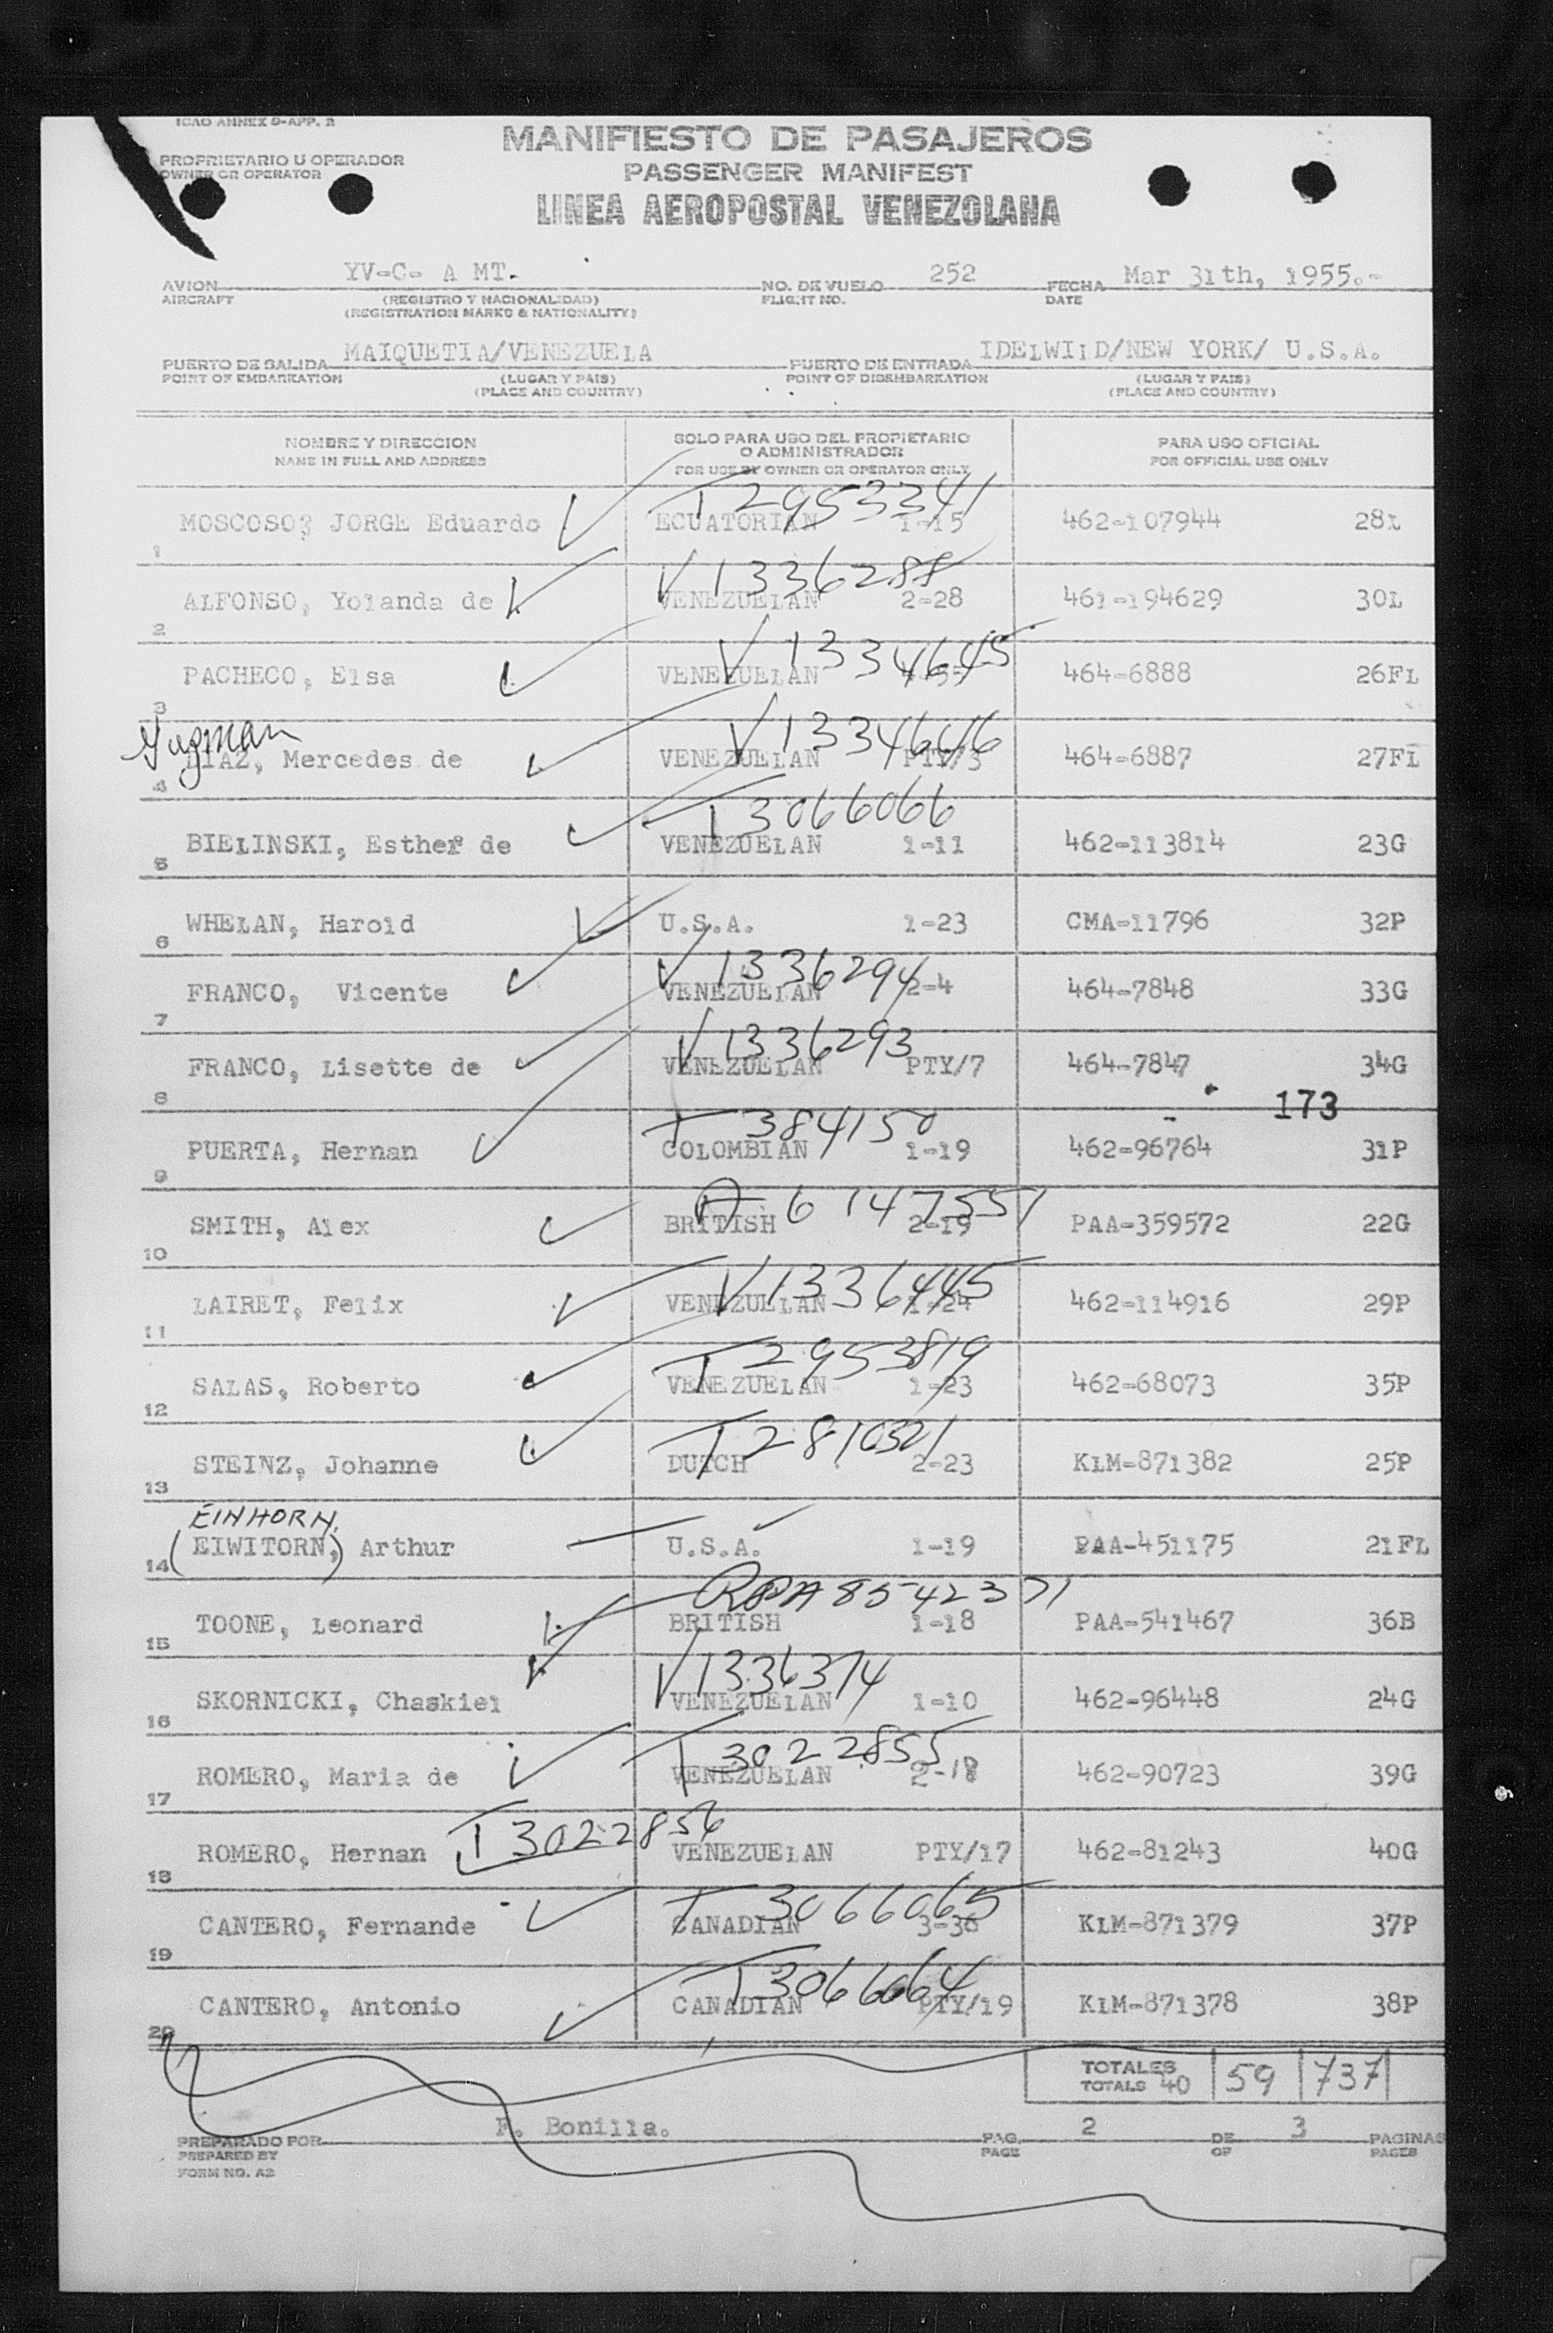 ICAO ANNEX 9-APP. 2
MANIFIESTO DE PASAJEROS
PROPRIETARIO U OPERADOR
OWNER OR OPERATOR
PASSENGER MANIFEST
LINEA AEROPOSTAL VENEZOLANA
AVION YV-C- A MT. NO. DE VUELO 252 FECHA Mar 31th, 1955.-
AIRCRAFT (REGISTRO Y NACIONALIDAD) FLIGHT NO. DATE
(REGISTRATION MARKS & NATIONALITY)
PUERTO DE SALIDA MAIQUETIA/VENEZUELA PUERTO DE ENTRADA IDELWILD/NEW YORK/ U.S.A.
POINT OF EMBARKATION (LUGAR Y PAIS) POINT OF DISEMBARKATION (LUGAR Y PAIS)
(PLACE AND COUNTRY) (PLACE AND COUNTRY)
NOMBRE Y DIRECCION SOLO PARA USO DEL PROPIETARIO PARA USO OFICIAL
O ADMINISTRADOR
NAME IN FULL AND ADDRESS FOR USE BY OWNER OR OPERATOR ONLY FOR OFFICIAL USE ONLY
T 2953341
1 MOSCOSO, JORGE Eduardo ECUATORIAN 1-15 462-107944 28L
V 1336288
2 ALFONSO, Yolanda de VENEZUELAN 2-28 461-194629 30L
V 1334645
3 PACHECO, Elsa VENEZUELAN 464-6888 26FL
Guzman V 1334646
4 DIAZ, Mercedes de VENEZUELAN PTY/3 464-6887 27FL
T 3066066
5 BIELINSKI, Esther de VENEZUELAN 1-11 462-113814 23G
6 WHELAN, Harold U.S.A. 1-23 CMA-11796 32P
V 1336294
7 FRANCO, Vicente VENEZUELAN 2-4 464-7848 33G
V 1336293
8 FRANCO, Lisette de VENEZUELAN PTY/7 464-7847 34G
173
T 384150
9 PUERTA, Hernan COLOMBIAN 1-19 462-96764 31P
A 6 147551
10 SMITH, Alex BRITISH 2-19 PAA-359572 22G
V 1336445
11 LAIRET, Felix VENEZUELAN 1-24 462-114916 29P
T 2953819
12 SALAS, Roberto VENEZUELAN 1-23 462-68073 35P
T 2810321
13 STEINZ, Johanne DUTCH 2-23 KLM-871382 25P
EINHORN,
14 (EIWITORN,) Arthur U.S.A. 1-19 PAA-451175 21FL
8542371
15 TOONE, Leonard BRITISH 1-18 PAA-541467 36B
V 1336374
16 SKORNICKI, Chaskiel VENEZUELAN 1-10 462-96448 24G
T 3022855
17 ROMERO, Maria de VENEZUELAN 2-18 462-90723 39G
T 3022856
18 ROMERO, Hernan VENEZUELAN PTY/17 462-81243 40G
T 3066065
19 CANTERO, Fernande CANADIAN 3-30 KLM-871379 37P
T 3066064
20 CANTERO, Antonio CANADIAN PTY/19 KLM-871378 38P
TOTALES
TOTALS 40 59 737
PREPARADO POR F. Bonilla. PAG. 2 DE 3 PAGINAS
PREPARED BY PAGE OF PAGES
FORM NO. A2